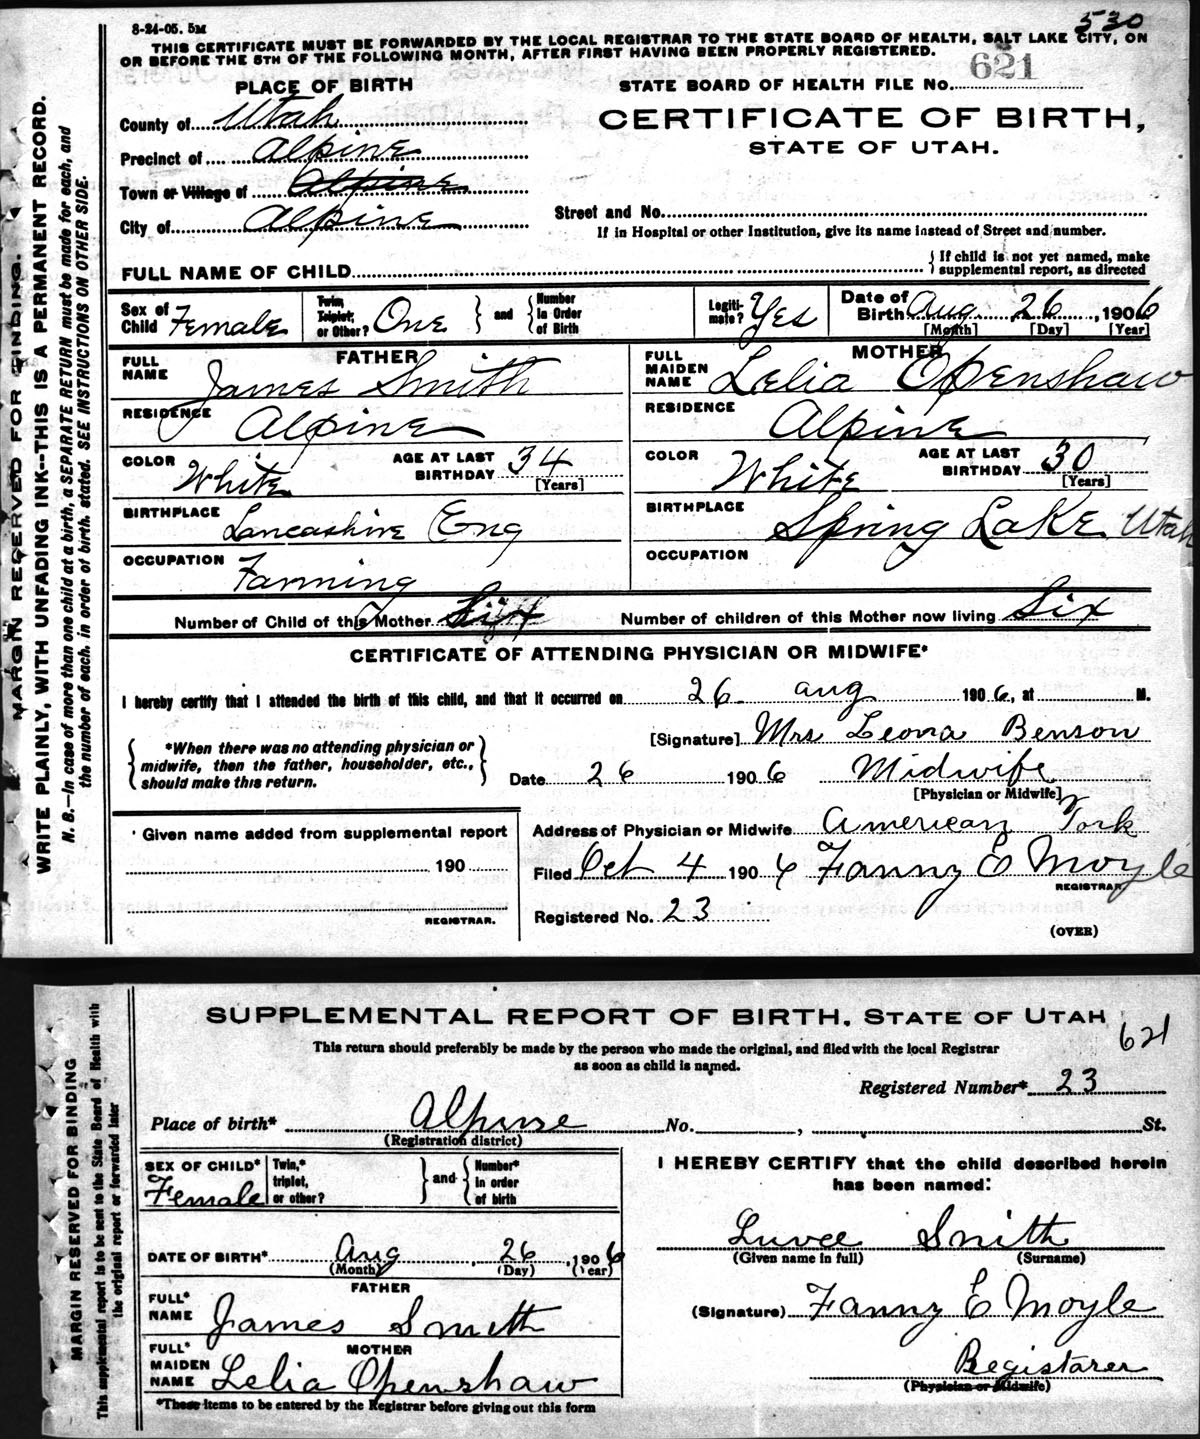 8-24-05. 5M
530
THIS CERTIFICATE MUST BE FORWARDED BY THE LOCAL REGISTRAR TO THE STATE BOARD OF HEALTH, SALT LAKE CITY, ON
OR BEFORE THE 5TH OF THE FOLLOWING MONTH, AFTER FIRST HAVING BEEN PROPERLY REGISTERED.
PLACE OF BIRTH
STATE BOARD OF HEALTH FILE NO. 621
County of Utah
CERTIFICATE OF BIRTH,
STATE OF UTAH.
Precinct of Alpine
Town or Village of Alpine
City of Alpine
Street and No.
If in Hospital or other Institution, give its name instead of Street and number.
FULL NAME OF CHILD
{ If child is not yet named, make
supplemental report, as directed
Sex of Child Female
Twin, Triplet, or Other? One } and { Number in Order of Birth
Legiti-mate? Yes
Date of Birth Aug 26, 1906
[Month] [Day] [Year]
FATHER
FULL NAME James Smith
RESIDENCE Alpine
COLOR White
AGE AT LAST BIRTHDAY 34 [Years]
BIRTHPLACE Lancashire Eng
OCCUPATION Farming
MOTHER
FULL MAIDEN NAME Lelia Openshaw
RESIDENCE Alpine
COLOR White
AGE AT LAST BIRTHDAY 30 [Years]
BIRTHPLACE Spring Lake Utah
OCCUPATION
Number of Child of this Mother Six
Number of children of this Mother now living Six
CERTIFICATE OF ATTENDING PHYSICIAN OR MIDWIFE*
I hereby certify that I attended the birth of this child, and that it occurred on 26 aug 1906, at M.
{ *When there was no attending physician or
midwife, then the father, householder, etc.,
should make this return. }
[Signature] Mrs Leona Benson
Date 26 1906 Midwife
[Physician or Midwife]
Given name added from supplemental report
190
REGISTRAR.
Address of Physician or Midwife American Fork
Filed Oct 4 1906 Fanny E Moyle
REGISTRAR
Registered No. 23
(OVER)
MARGIN RESERVED FOR BINDING.
WRITE PLAINLY, WITH UNFADING INK--THIS IS A PERMANENT RECORD.
N. B.—In case of more than one child at a birth, a SEPARATE RETURN must be made for each, and
the number of each, in order of birth, stated. SEE INSTRUCTIONS ON OTHER SIDE.
SUPPLEMENTAL REPORT OF BIRTH, STATE OF UTAH
621
This return should preferably be made by the person who made the original, and filed with the local Registrar
as soon as child is named.
Registered Number* 23
Place of birth* Alpine No. , St.
(Registration district)
SEX OF CHILD* Female
Twin,* triplet, or other? } and { Number* in order of birth
DATE OF BIRTH* Aug, 26, 1906
(Month) (Day) (Year)
FATHER
FULL* NAME James Smith
MOTHER
FULL* MAIDEN NAME Lelia Openshaw
*These items to be entered by the Registrar before giving out this form
I HEREBY CERTIFY that the child described herein
has been named:
Luvee Smith
(Given name in full) (Surname)
(Signature) Fanny E Moyle
Registarer
(Physician or Midwife)
MARGIN RESERVED FOR BINDING
This supplemental report is to be sent to the State Board of Health with
the original report or forwarded later